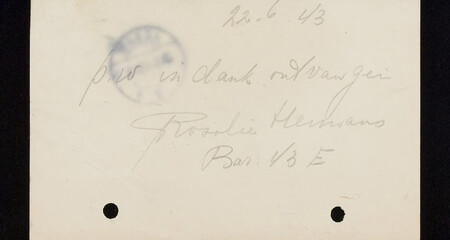 22-6 43
p.w in dank ontvangen
Rosalie Hermans
Bar. 43 E